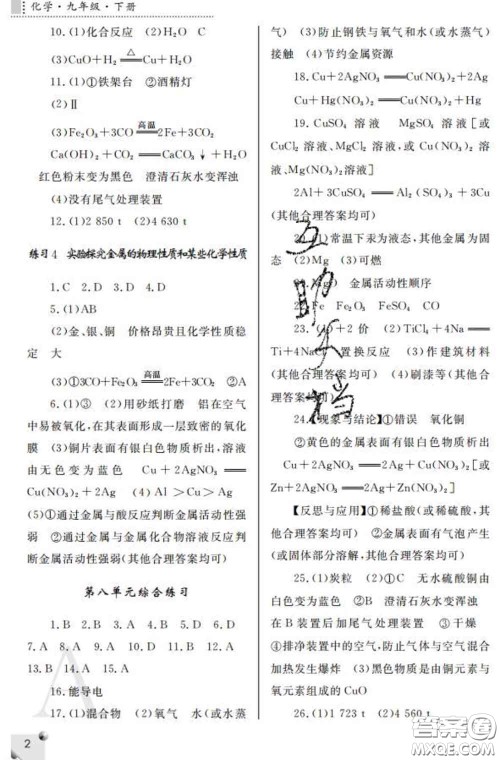 化学·九年级·下册
10.(1)化合反应 (2)H₂O C
(3)CuO+H₂ ══△══ Cu+H₂O
11.(1)①铁架台 ②酒精灯
(2)Ⅱ
(3)Fe₂O₃+3CO ══高温══ 2Fe+3CO₂
Ca(OH)₂+CO₂══CaCO₃↓+H₂O
红色粉末变为黑色 澄清石灰水变浑浊
(4)没有尾气处理装置
12.(1)2 850 t (2)4 630 t
练习4 实验探究金属的物理性质和某些化学性质
1.C 2.D 3.D 4.D
5.(1)AB
(2)金、银、铜 价格昂贵且化学性质稳
定 大
(3)①3CO+Fe₂O₃ ══高温══ 2Fe+3CO₂ ②A
6.(1)③ (2)用砂纸打磨 铝在空气
中易被氧化,在其表面形成一层致密的氧化
膜 (3)铜片表面有银白色物质析出,溶液
由无色变为蓝色 Cu+2AgNO₃══
Cu(NO₃)₂+2Ag (4) Al＞Cu＞Ag
(5)①通过金属与酸反应判断金属活动性强
弱 ②通过金属与金属化合物溶液反应判
断金属活动性强弱(其他合理答案均可)
第八单元综合练习
1.B 2.B 3.A 4.B 5.D 6.D
7.A 8.A 9.D 10.D 11.A 12.A
13.B 14.A 15.A
16.能导电
17.(1)混合物 (2)氧气 水(或水蒸
气) (3)防止钢铁与氧气和水(或水蒸气)
接触 (4)节约金属资源
18.Cu+2AgNO₃══Cu(NO₃)₂+2Ag
Cu+Hg(NO₃)₂══Cu(NO₃)₂+Hg
19.CuSO₄ 溶液 MgSO₄ 溶液[或
CuCl₂ 溶液、MgCl₂ 溶液,或 Cu(NO₃)₂溶
液、Mg(NO₃)₂溶液]
2Al+3CuSO₄══Al₂(SO₄)₃+3Cu
(其他合理答案均可)
20.(1)常温下汞为液态,其他金属为固
态 (2)Mg (3)可燃
金属活动性顺序
Fe Fe₂O₃ FeSO₄ CO
23.(1)+2 价 (2)TiCl₄+4Na══
Ti+4NaCl 置换反应 (3)作建筑材料
(其他合理答案均可) (4)刷漆等(其他合
理答案均可)
24.【现象与结论】①错误 氧化铜
②黄色的金属表面有银白色物质析出
Cu+2AgNO₃══2Ag+Cu(NO₃)₂[或
Zn+2AgNO₃══2Ag+Zn(NO₃)₂]
【反思与应用】①稀盐酸(或稀硫酸,其
他合理答案均可) ②金属表面有气泡产生
(或固体部分溶解,其他合理答案均可)
25.(1)炭粒 (2)① C 无水硫酸铜由
白色变为蓝色 ②B 澄清石灰水变浑浊
在 B 装置后加尾气处理装置 ③干燥
④排净装置中的空气,防止气体与空气混合
加热发生爆炸 (3)黑色物质是由铜元素与
氧元素组成的 CuO
26.(1)1 723 t (2)4 560 t
互助文档
2
答案圈
MXQE.COM